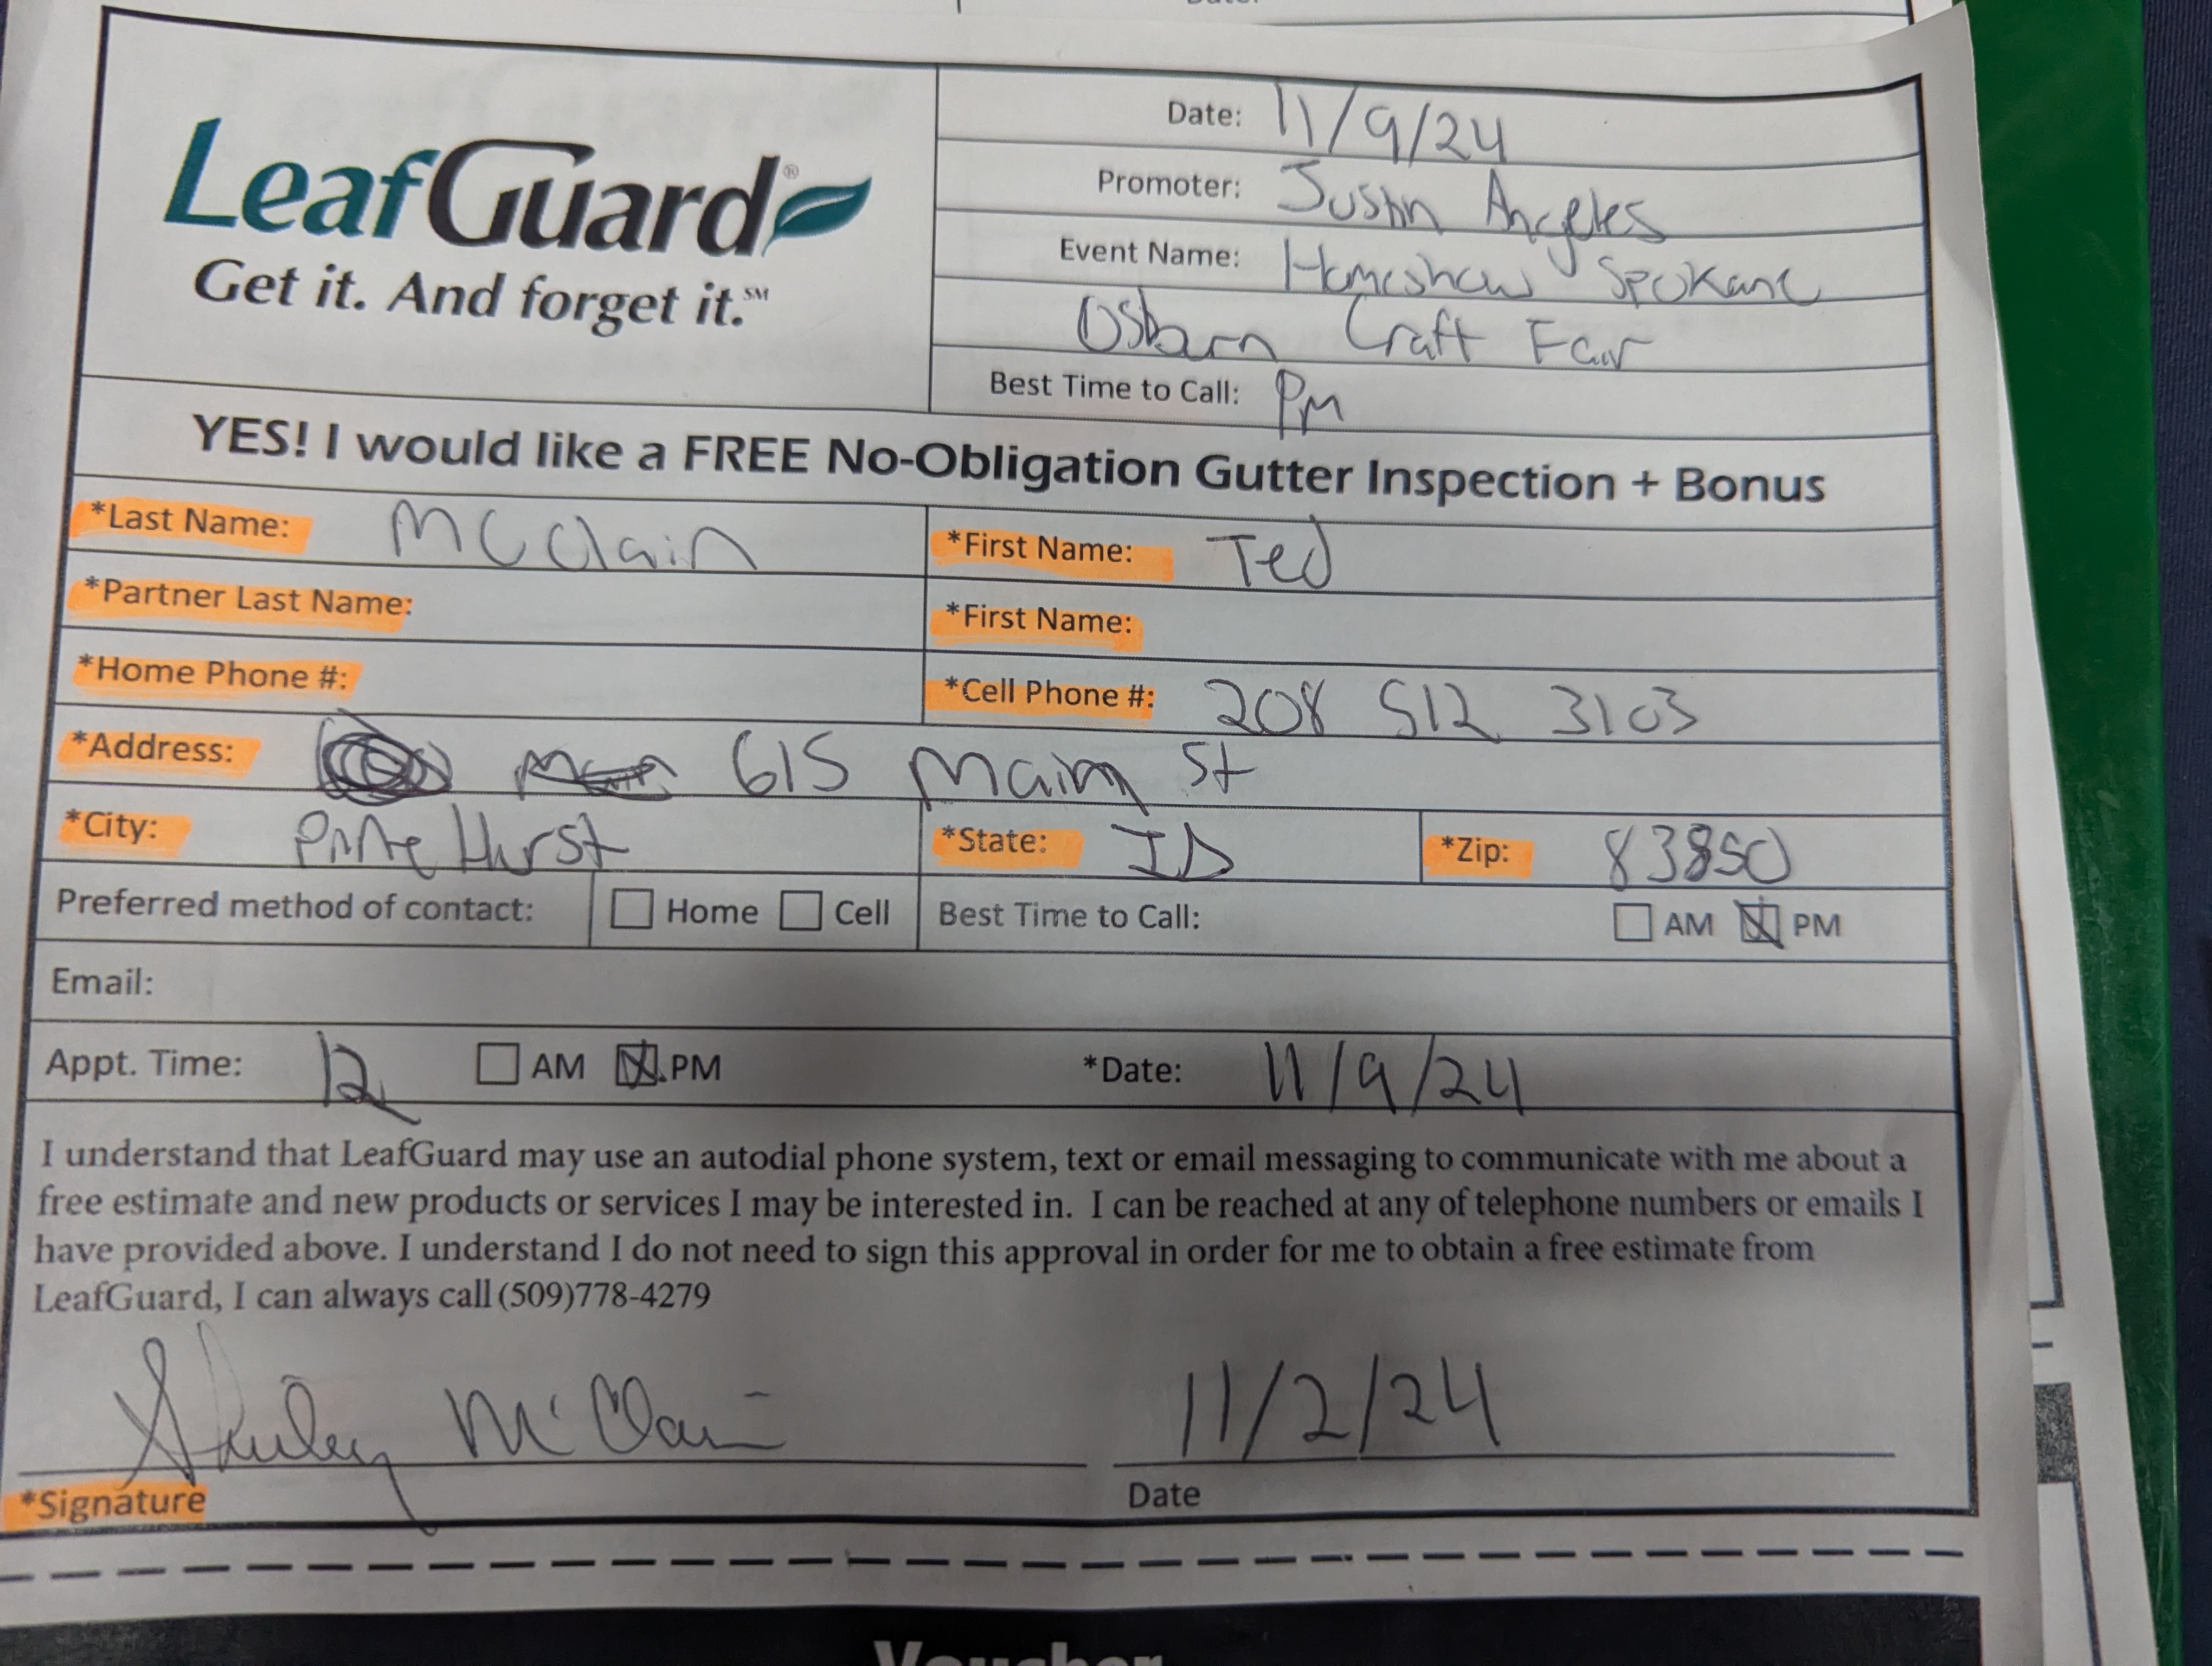 LeafGuard®
Get it. And forget it.℠
Date: 11/9/24
Promoter: Justin Angeles
Event Name: Homeshow Spokane
Osburn Craft Fair
Best Time to Call: Pm
YES! I would like a FREE No-Obligation Gutter Inspection + Bonus
*Last Name: McClain *First Name: Ted
*Partner Last Name: *First Name:
*Home Phone #: *Cell Phone #: 208 512 3103
*Address: 615 Main St
*City: Pine Hurst *State: ID *Zip: 83850
Preferred method of contact: ☐ Home ☐ Cell Best Time to Call: ☐ AM ☒ PM
Email:
Appt. Time: 12 ☐ AM ☒ PM *Date: 11/9/24
I understand that LeafGuard may use an autodial phone system, text or email messaging to communicate with me about a
free estimate and new products or services I may be interested in. I can be reached at any of telephone numbers or emails I
have provided above. I understand I do not need to sign this approval in order for me to obtain a free estimate from
LeafGuard, I can always call (509)778-4279
Shirley McClain 11/2/24
*Signature Date
Voucher